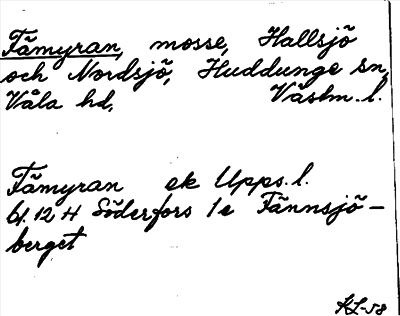 Fämyran, mosse, Hallsjö
och Nordsjö, Huddunge sn,
Våla hd, Västm. l.
Fämyran ek Upps. l.
bl. 12 H Söderfors 1e Fännsjö-
berget
KL-58